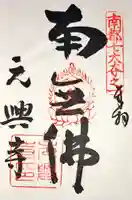 南都七大寺之一
奉拝
南無佛
元興寺